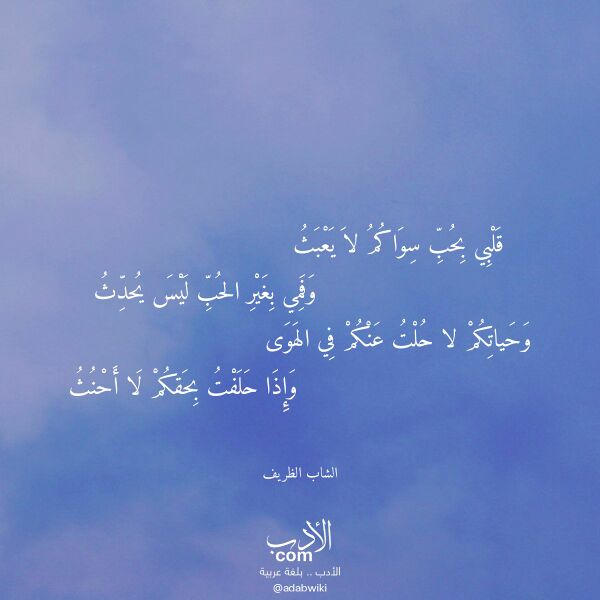 قَلْبِي بِحُبِّ سِوَاكُمُ لاَ يَعْبَثُ
وَفَمِي بِغَيْرِ الحُبِّ لَيْسَ يُحدِّثُ
وَحَياتِكُمْ لا حُلْتُ عَنْكُمْ فِي الهَوَى
وَإِذَا حَلَفْتُ بِحَقكُمْ لَا أَحْنُثُ
الشاب الظريف
الأدب
com
الأدب .. بلغة عربية
@adabwiki